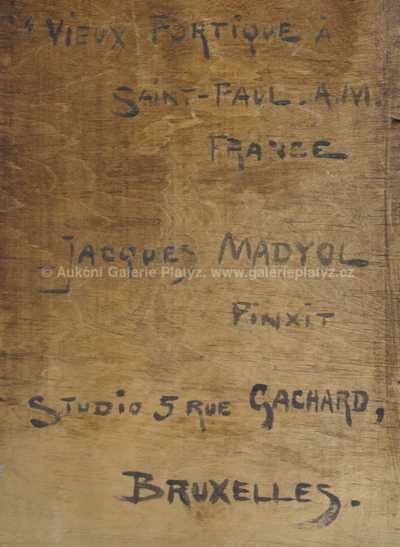 "VIEUX PORTIQUE À
SAINT-PAUL. A.M.
FRANCE
JACQUES MADYOL
© Aukční Galerie Platýz, www.galerieplatyz.cz
PINXIT
STUDIO 5 RUE GACHARD,
BRUXELLES.